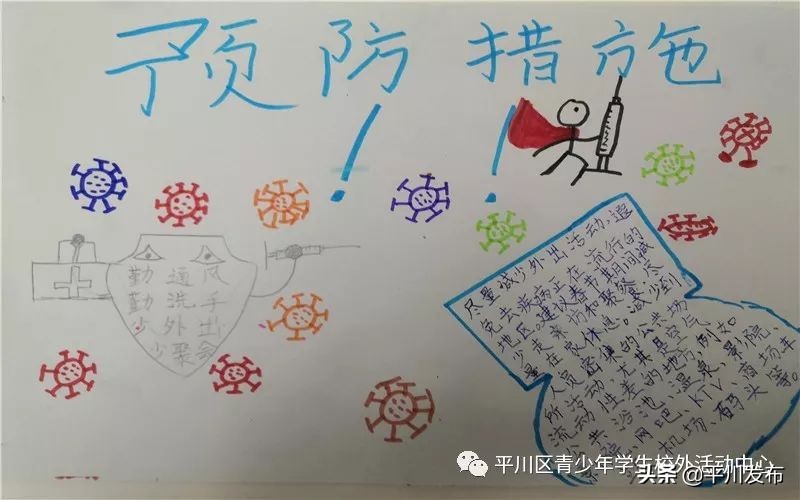 预防措施
！！
勤通风
勤洗手
少外出
少聚会
尽量减少外出活动、避
免去疾病正在流行的
地区。建议春节期间减
少走亲访和聚餐,尽
量在家休息。减少到
人员密集的公共场
所活动,尤其是空气
流动性差的地方,例如
公共浴池、温泉、影院、
网吧、KTV、商场车
机场、码头等。
平川区青少年学生校外活动中心
头条 @平川发布